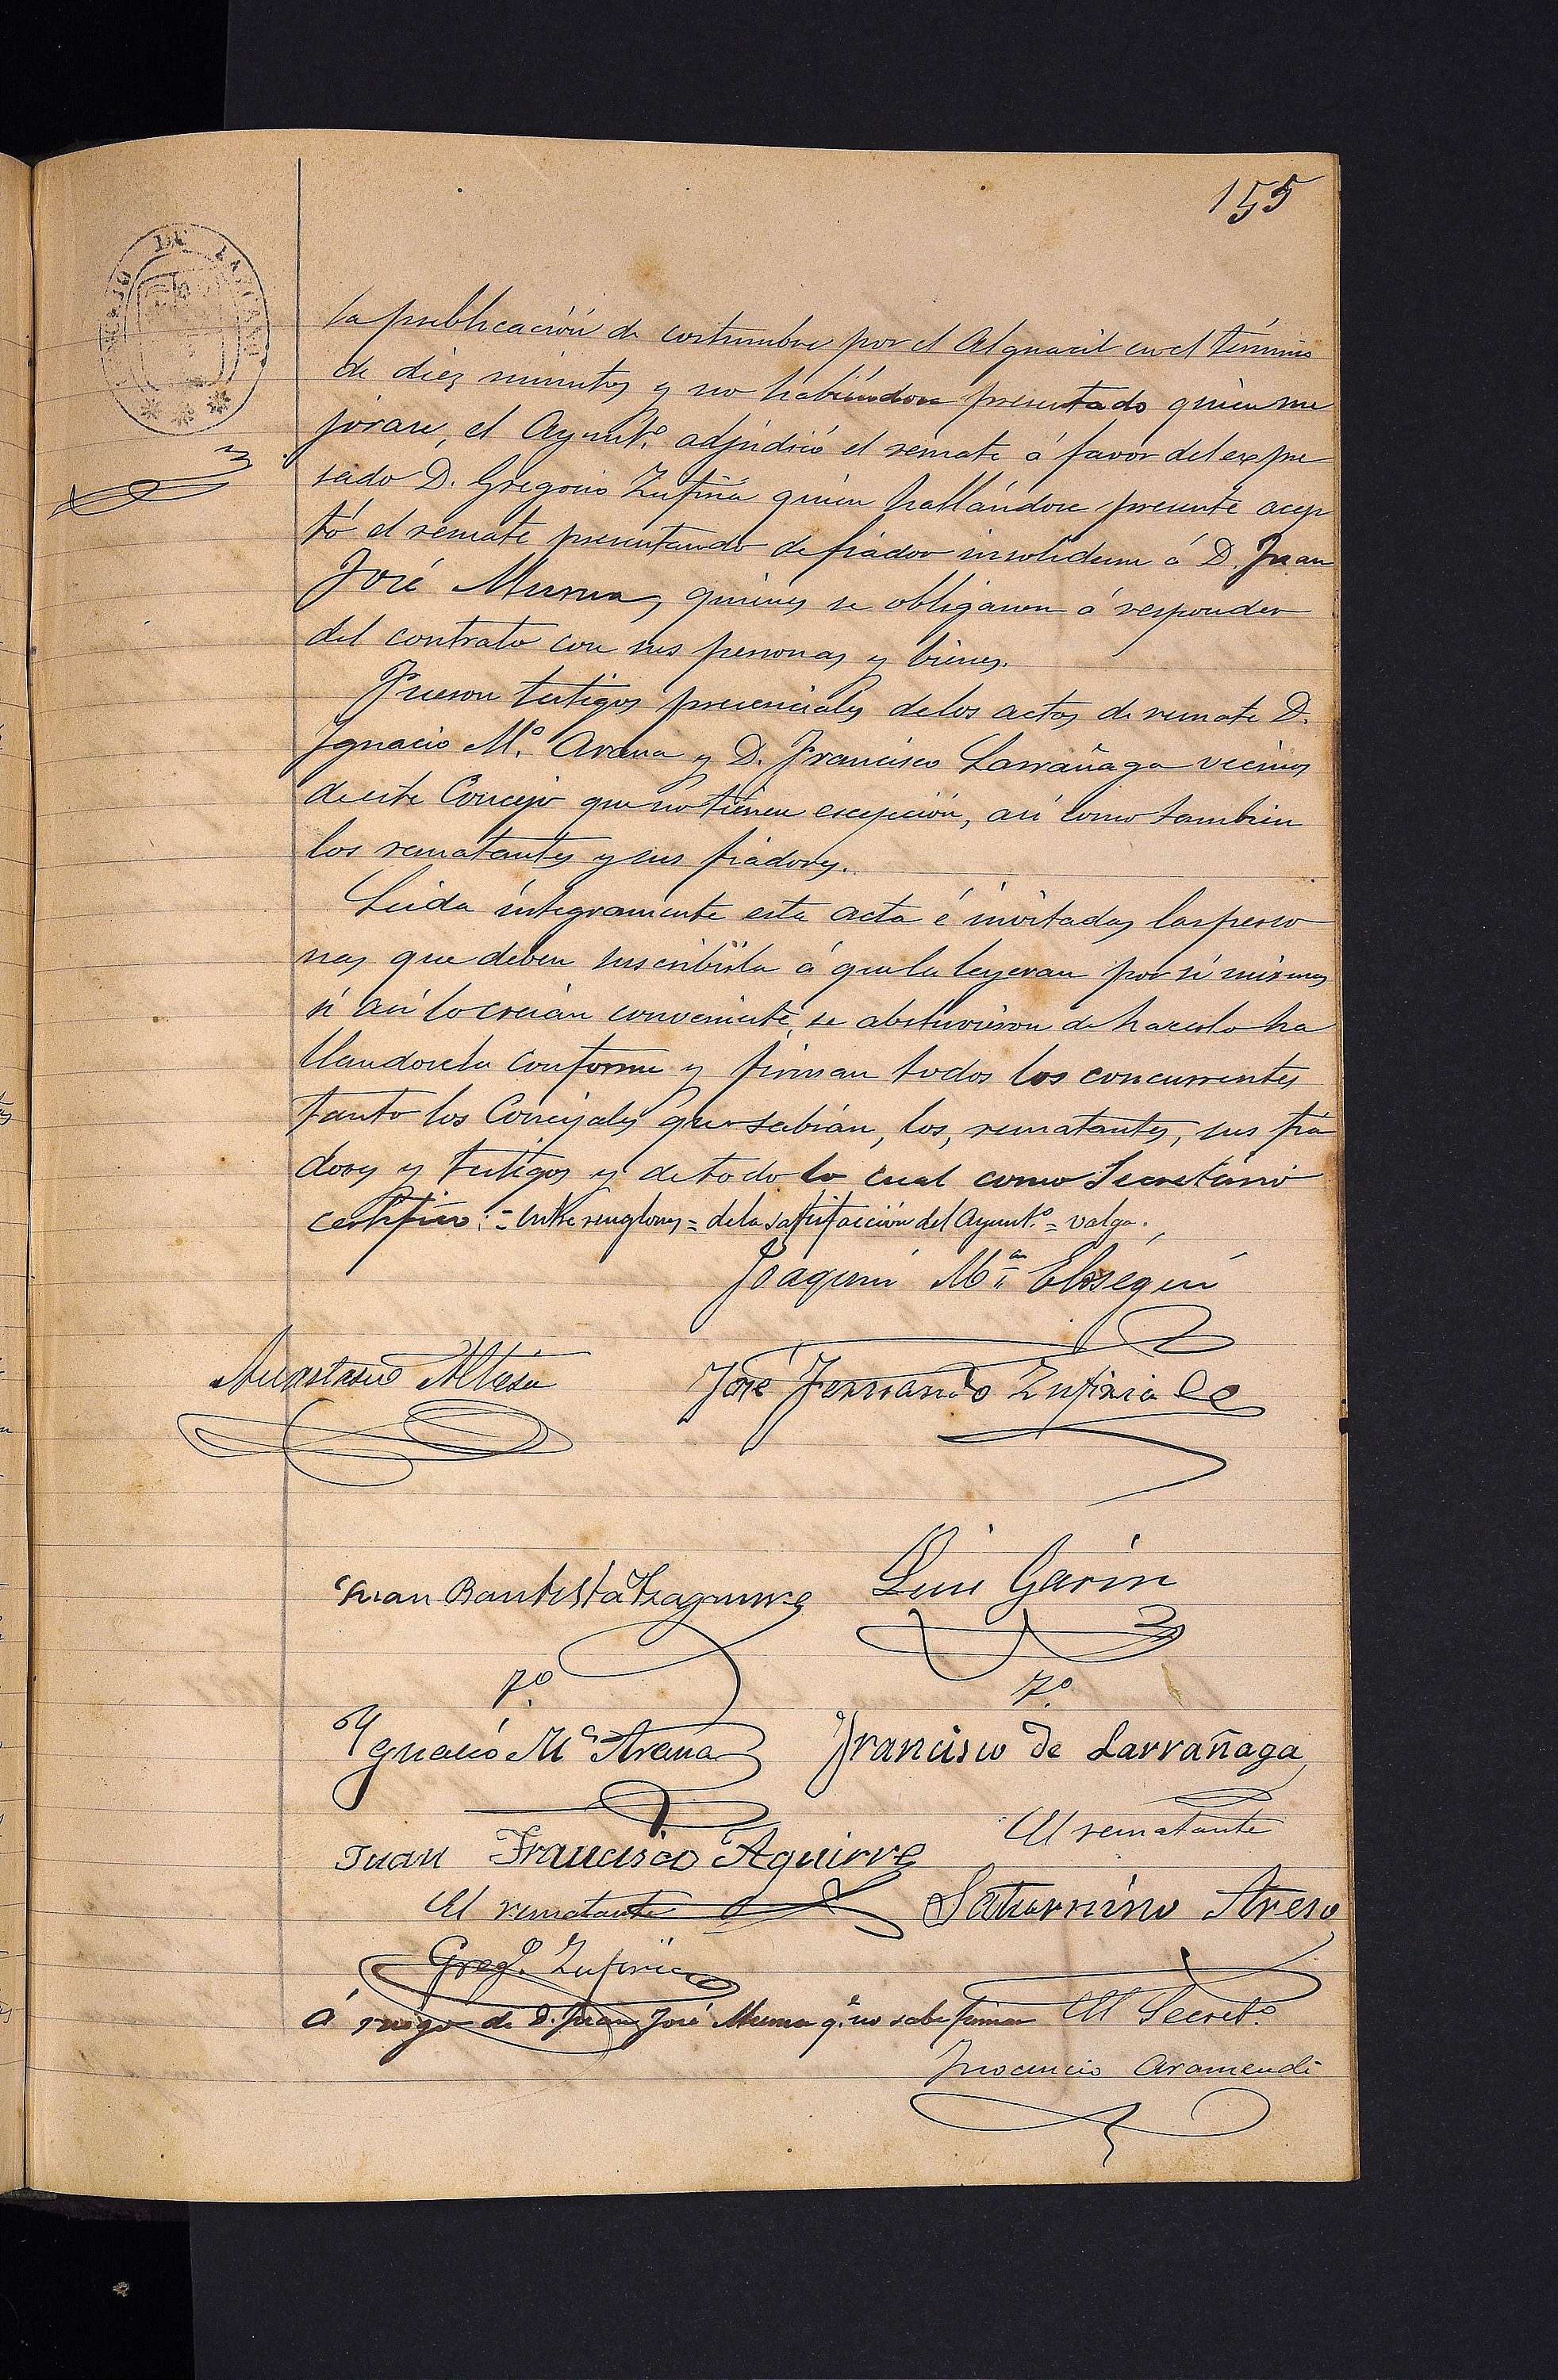 155
la publicación de costumbre por el Alguacil en el término
de diez minutos y no habiéndose presentado quien me
jorase, el Ayuntº adjudicó el remate á favor del expre
sado D. Gregorio Zufiria quien hallándose presente acep
tó el remate presentando de fiador insolidum á D. Juan
José Murua, quienes se obligaron á responder
del contrato con sus personas y bienes.
Fueron testigos presenciales de los actos de remate D.
Ignacio M.ª Arana y D. Francisco Larrañaga vecinos
de este Concejo que no tienen escepción, así como tambien
los rematantes y sus fiadores.
Leida íntegramente esta acta é invitadas las perso
nas que deben suscribirla á que la leyeran por sí mismas
si así lo creían conveniente, se abstuvieron de hacerlo ha
llandosela conforme y firman todos los concurrentes
tanto los Concejales que sabían, los, rematantes, sus fia
dores y testigos y de todo lo cual como Secretario
certifico:= Entre renglones = de la satisfacción del Ayuntº = valga.
Joaquin Mª Elosegui
Anastasio Altasu
José Fernando Zufiria
Juan Bautista
Luis Garin
Tº
Tº
Ygnacio Mª Arana
Francisco de Larrañaga
El rematante
Juan Francisco Aguirre
El rematante
Saturnino Areso
Gregº Zufiria
Á ruego de D. Juan José Murua q.e no sabe firmar
El Secretº
Inocencio Aramendi